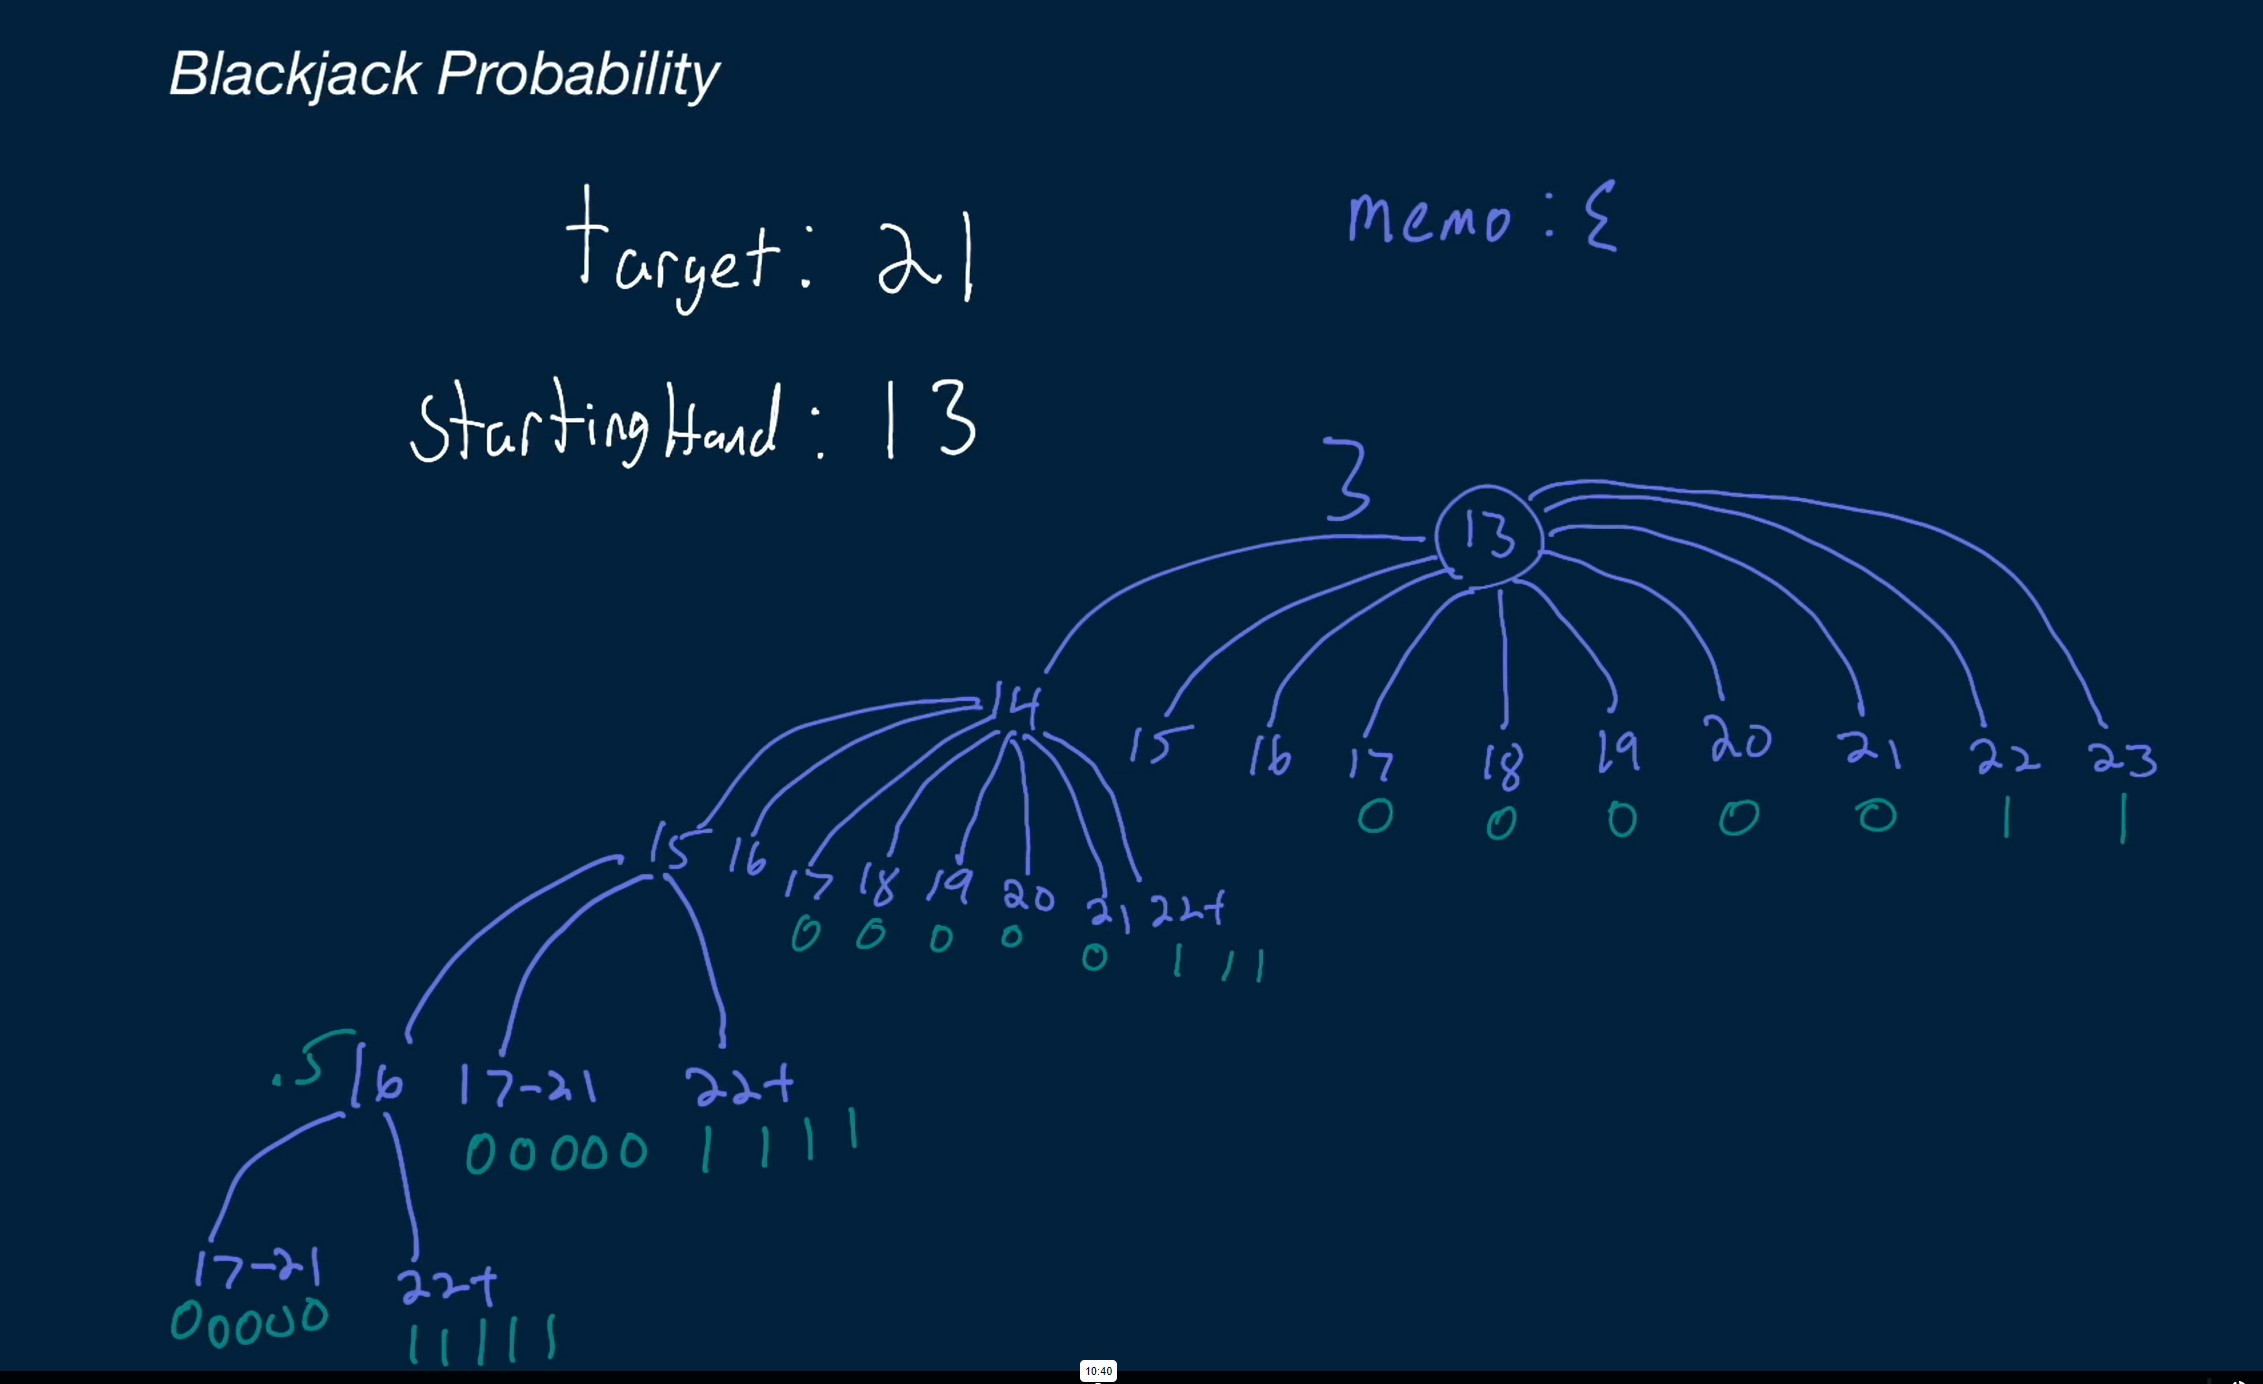 Blackjack Probability
target: 21
memo: {
startingHand: 13
3
13
14
15 16 17 18 19 20 21 22 23
0 0 0 0 0 1 1
15 16 17 18 19 20 21 22+
0 0 0 0 0 1 1 1
.5 16 17-21 22+
0 0 0 0 0 1 1 1 1
17-21 22+
0 0 0 0 0 1 1 1 1 1
10:40